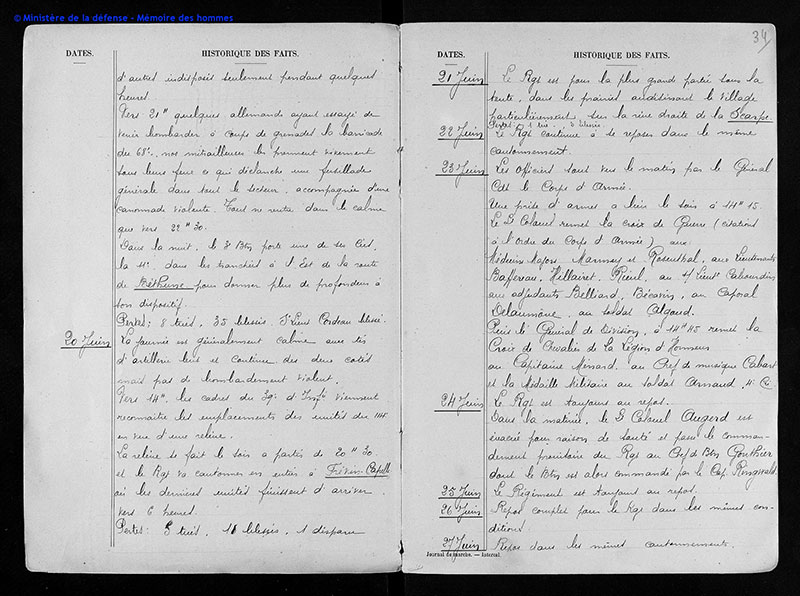 © Ministère de la défense - Mémoire des hommes
DATES. HISTORIQUE DES FAITS.
d'autres indisposés seulement pendant quelques
heures.
Vers 21h quelques allemands ayant essayé de
venir bombarder à coups de grenades la barricade
du 68e, nos mitrailleuses les prennent vivement
sous leurs feux ce qui déclanche une fusillade
générale dans tout le secteur, accompagnée d'une
canonnade violente. Tout ne rentre dans le calme
que vers 22h30.
Dans la nuit, le Btn porte une de ses Cies,
la dans les tranchées à l'Est de la route
de Béthune pour donner plus de profondeur à
son dispositif.
Pertes: 8 tués, 35 blessés, S/Lieut Cordeau blessé.
20 Juin La journée est généralement calme avec tirs
d'artillerie lent et continue des deux cotés
mais pas de bombardement violent.
Vers 14h, les cadres du d'Inf viennent
reconnaître les emplacements des unités du 114
en vue d'une relève.
La relève se fait le soir à partir de 20h30
et le Rgt va cantonner en entier à Frévin-Capelle
où les dernières unités finissent d'arriver
vers 6 heures.
Pertes: 5 tués, 11 blessés, 1 disparu
34
DATES. HISTORIQUE DES FAITS.
21 Juin Le Rgt est pour la plus grande partie sous la
tente, dans les prairies avoisinant le village
particulièrement sur la rive droite de la Scarpe.
Pertes: 1 tué blessés
22 Juin Le Rgt continue à se reposer dans le même
cantonnement.
23 Juin Les officiers sont vus le matin par le Général
Cdt le Corps d'Armée.
Une prise d'armes a lieu le soir à 14h15.
Le Lt Colonel remet la croix de Guerre (citations
à l'ordre du Corps d'Armée) aux
Médecins Majors Marmey et Rosenthal, aux Lieutenants
Baffereau, Hillairet, Rieul, au S/Lieut Cabourdin
aux adjudants Belliard, Bécavin, au Caporal
Delaumône, au soldat Algaud.
Puis le Général de Division, à 14h45 remet la
Croix de Chevalier de la Légion d'Honneur
au Capitaine Menard, au Chef de musique Cabart
et la Médaille Militaire au soldat Arnaud, 4e Cie.
24 Juin Le Rgt est toujours au repos.
Dans la matinée, le Lt Colonel Augerd est
évacué pour raison de santé et passe le comman-
dement provisoire du Rgt au Chef de Btn Gonthier
dont le Btn est alors commandé par le Cap. Ringwald.
25 Juin Le Régiment est toujours au repos.
26 Juin Repos complet pour le Rgt dans les mêmes con-
ditions.
27 Juin Repos dans les mêmes cantonnements.
Journal de marche. — Intercal.